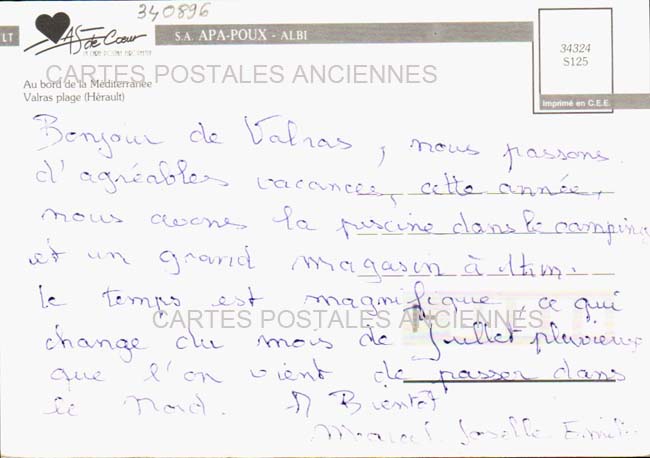 340896
LT
As de Cœur
S.A. APA-POUX - ALBI
34324
S125
Imprimé en C.E.E.
Au bord de la Méditerranée
Valras plage (Hérault)
CARTES POSTALES ANCIENNES
Bonjour de Valras, nous passons
d'agréables vacances, cette année,
nous avons la piscine dans le camping
et un grand magasin à 1km.
le temps est magnifique, ce qui
CARTES POSTALES ANCIENNES
change du mois de Juillet pluvieux
que l'on vient de passer dans
le Nord. A Bientôt
Marcel Joselle